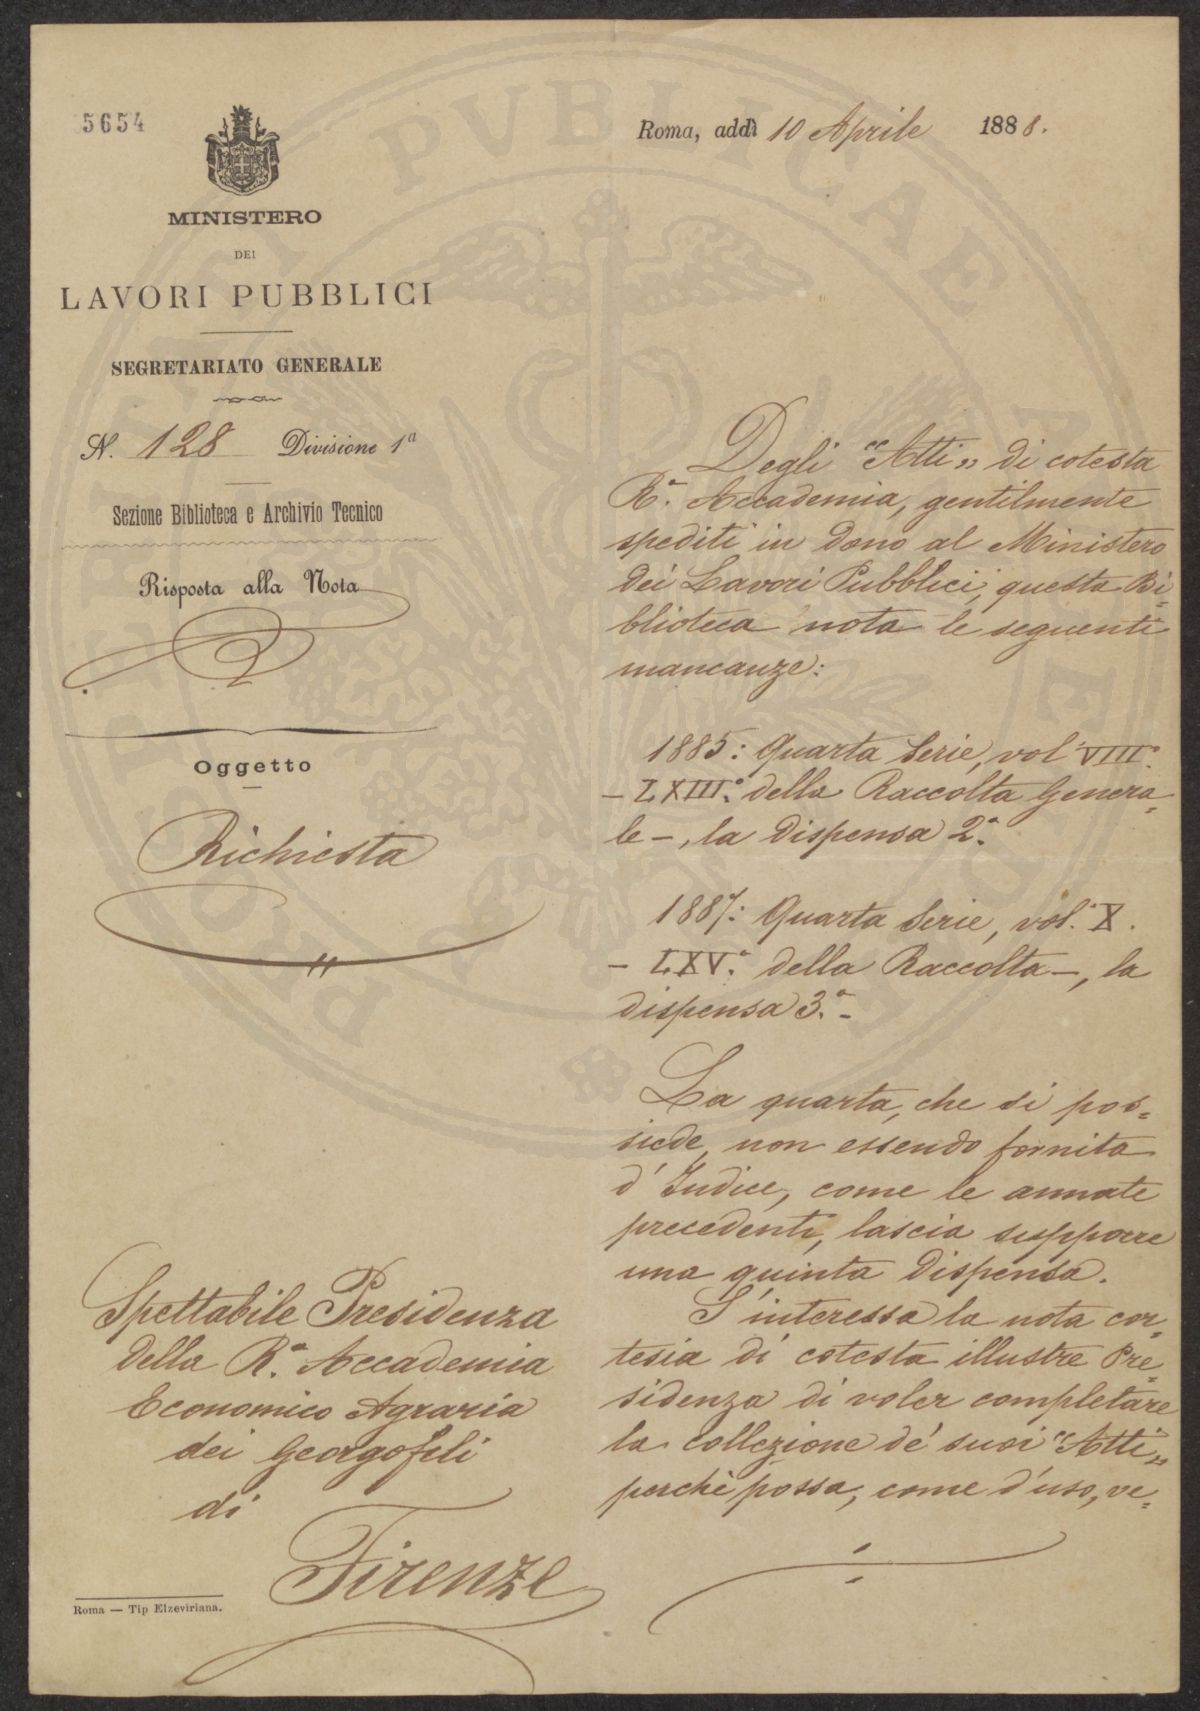 5654
MINISTERO
DEI
LAVORI PUBBLICI
SEGRETARIATO GENERALE
N. 128 Divisione 1ª
Sezione Biblioteca e Archivio Tecnico
Risposta alla Nota
Oggetto
Richiesta
Spettabile Presidenza
della R.ª Accademia
Economico Agraria
dei Georgofili
di
Firenze
Roma — Tip Elzeviriana.
Roma, addì 10 Aprile 1888.
Degli "Atti„ di cotesta
R.ª Accademia, gentilmente
spediti in dono al Ministero
dei Lavori Pubblici, questa Bi=
blioteca nota le seguenti
mancanze:
1885: Quarta Serie, vol. VIII.º
– LXIII.º della Raccolta Genera=
le –, la dispensa 2.ª
1887: Quarta Serie, vol. X.
– LXV.º della Raccolta –, la
dispensa 3.ª –
La quarta, che si pos=
siede, non essendo fornita
d'Indice, come le annate
precedenti, lascia supporre
una quinta dispensa.
S'interessa la nota cor=
tesia di cotesta illustre Pre=
sidenza di voler completare
la collezione de' suoi "Atti„
perchè possa, come d'uso, ve=
PVBLICAE